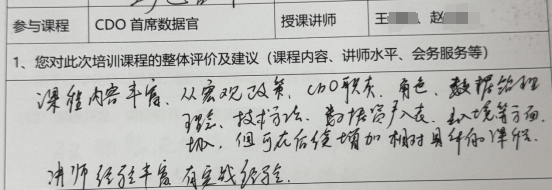 参与课程 CDO 首席数据官 授课讲师 王 、赵
1、您对此次培训课程的整体评价及建议（课程内容、讲师水平、会务服务等）
课程内容丰富、从宏观政策、CDO职责、角色、数据治理
理念、技术方法、数据资产入表、 环境等方面
切入，但可在后续增加相对具体的课程
讲师经验丰富有实战经验.